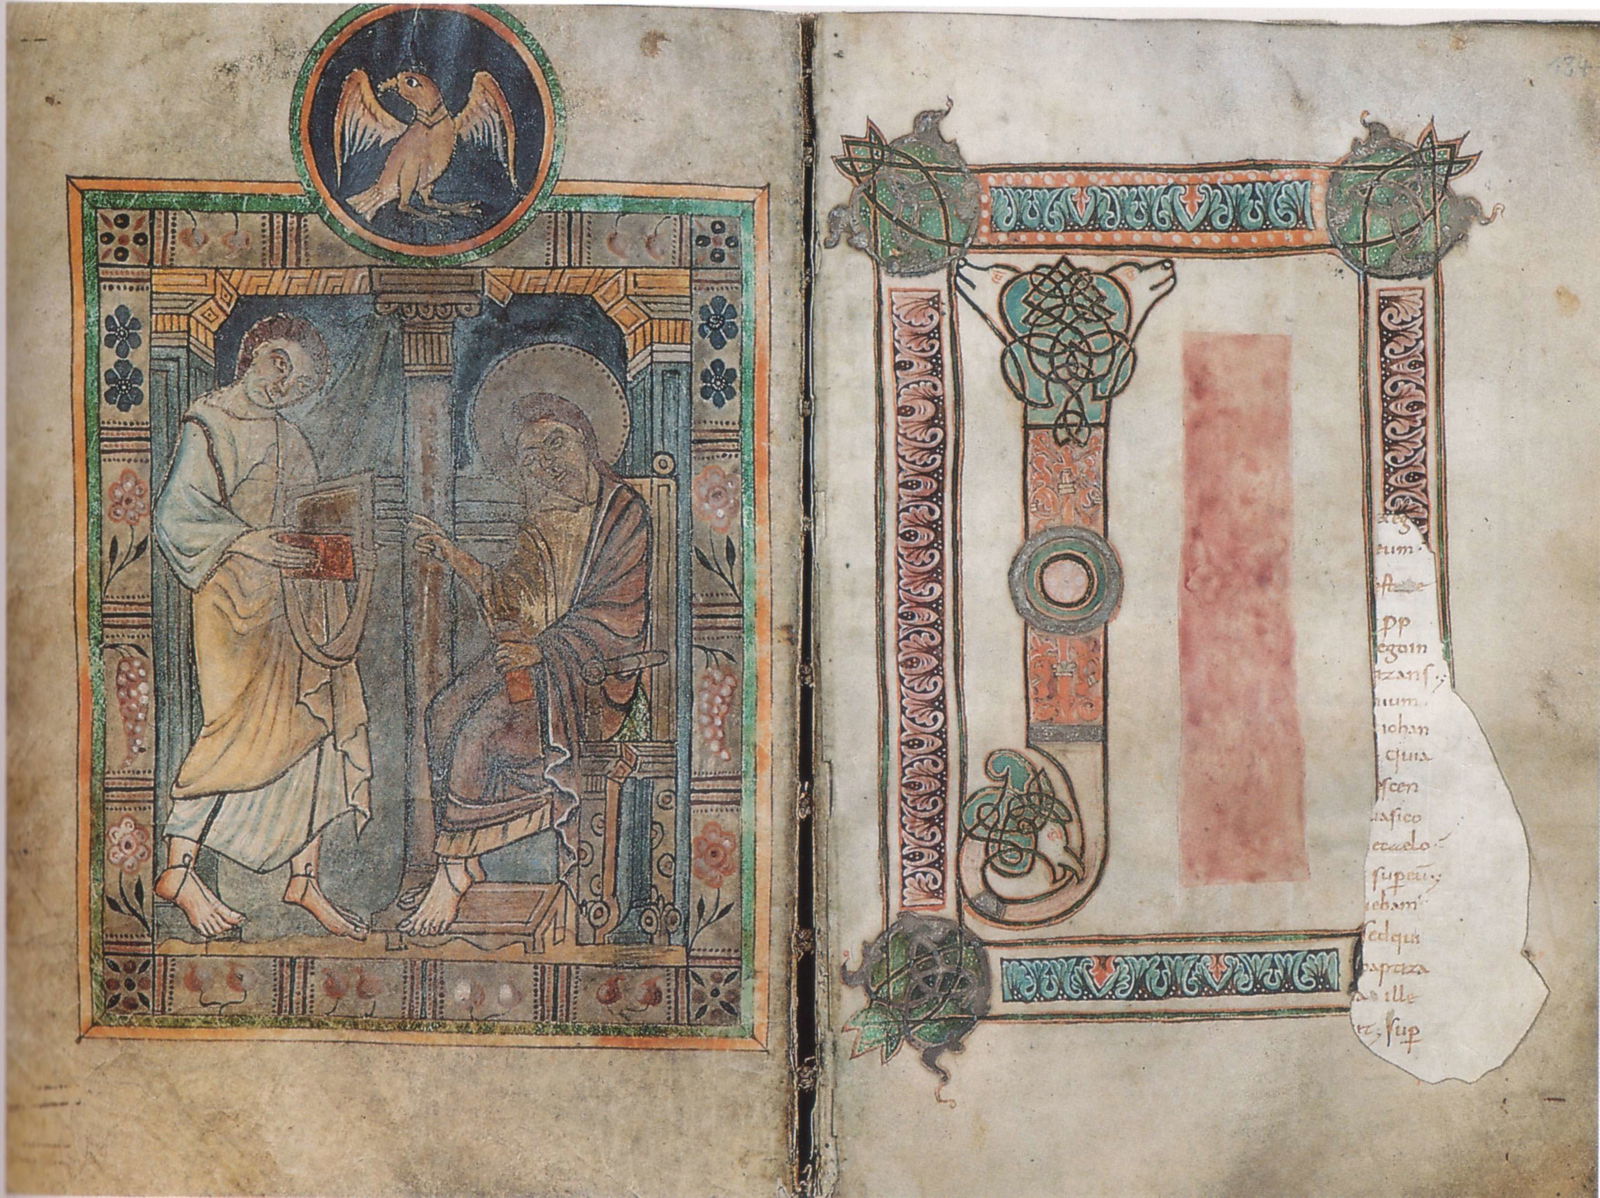 134
I
eum·
pp
egoin
tizanſ·;
iohan
Quia
eſcen
uaſico
&caelo·
ſup eū·;
iebam
ſedqui
baptiza
ille
ſup